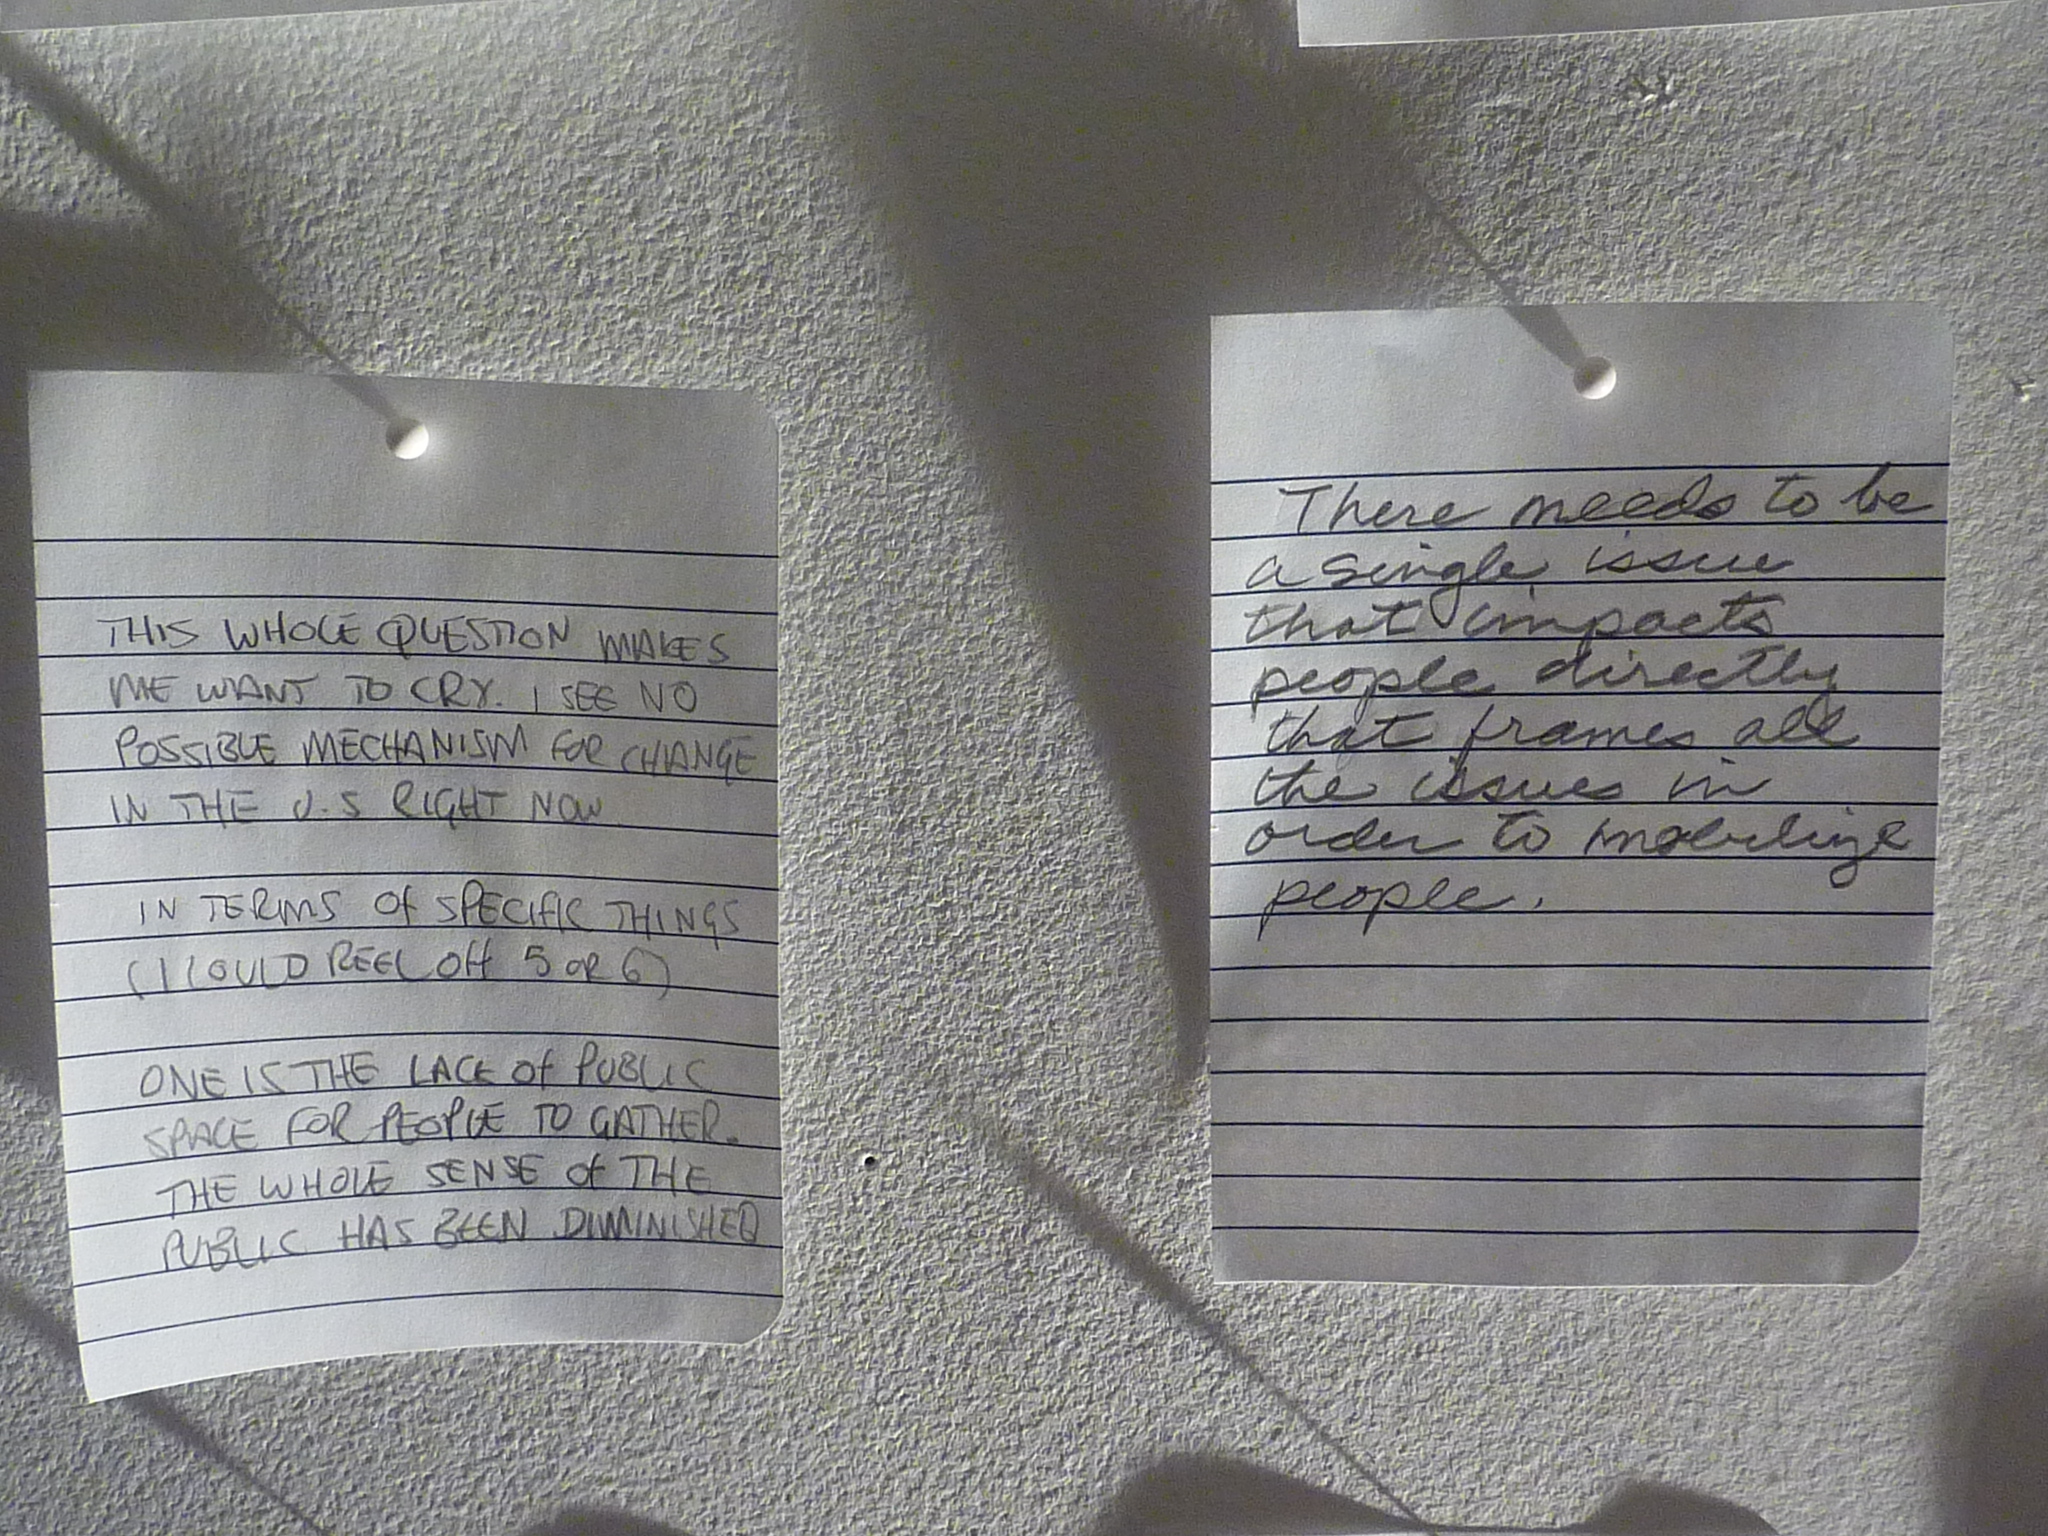 THIS WHOLE QUESTION MAKES
ME WANT TO CRY. I SEE NO
POSSIBLE MECHANISM FOR CHANGE
IN THE U.S RIGHT NOW
IN TERMS OF SPECIFIC THINGS
(I COULD REEL OFF 5 OR 6)
ONE IS THE LACK OF PUBLIC
SPACE FOR PEOPLE TO GATHER.
THE WHOLE SENSE OF THE
PUBLIC HAS BEEN DIMINISHED
There needs to be
a single issue
that impacts
people directly
that frames all
the issues in
order to mobilize
people.